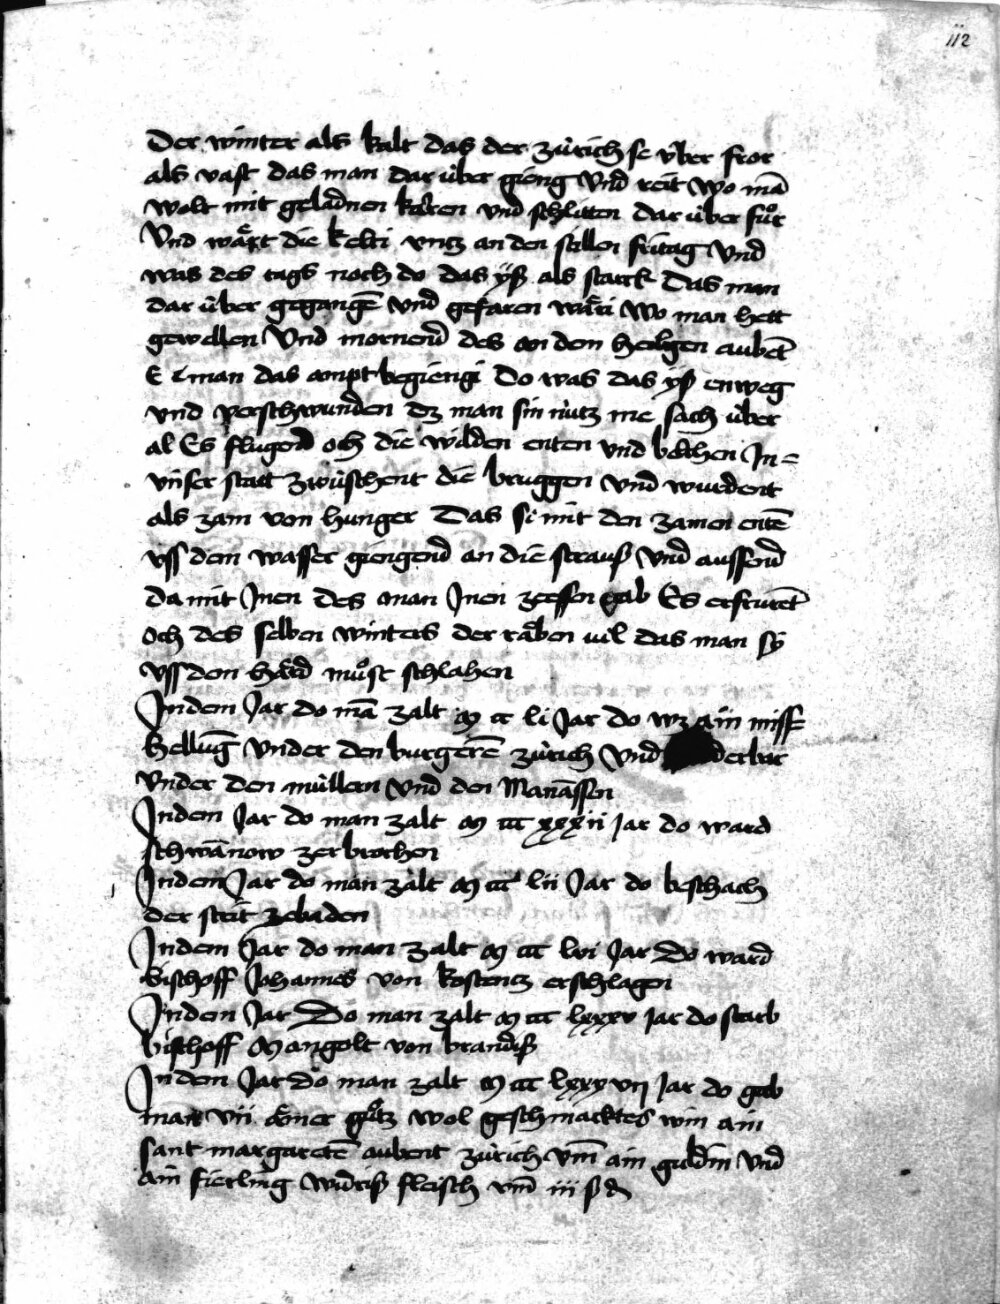 112
Der winter als kalt das der zürich se v̈ber fror
als vast das man dar über gieng vnd reit wo mā
wolt mit geladnen kärren vnd schlitten dar über fůr
Vnd wäret die kelti vntz an den stillen fritag Vnd
was des tags noch do das ÿß als starck Das man
dar über gegangē vnd gefaren wäri Wo man hett
gewellen Vnd mornend des an dem heilgen aubēt
E man das ampt begiengi Do was das ÿß enweg
vnd verschwunden dz man sin nütz me sach über
al Es flugend och die wilden enten vnd bölchen In=
vnser statt zwüschent die bruggen vnd wurdent
als zam von hunger Das si mit den zamen entē
vss dem wasser giengend an die strauß Vnd aussend
da mit Inen des man Inen zeessen gab Es erfrurēt
och des selben winters der räben vil das man sÿ
vss dem härd můst schlahen
In dem Jar do mā zalt M cc li Jar do wz ain miss=
hellūg Vnder den burgerē zürich Vnd
vnder den müllern vnd den Manāssen
In dem Jar do man zalt M ccc xxxii Jar do ward
schwānow zerbrochen
In dem Jar do man zalt M ccc lii Jar do beschach
der strit ze baden
In dem Jar do man zalt M ccc lvi Jar Do ward
bischoff Johannes von kostentz erschlagen
In dem Jar Do man zalt M ccc lxxxv Jar do starb
bischoff Mangolt von brandiß
In dem Jar do man zalt M ccc lxxxvii Jar do gab
man vii ämer gůtz wol geschmacktes win an
sant margaretē aubent zürich vm̄ ain guldin vnd
ain fierling widriß fleisch vm̄ iii ß d